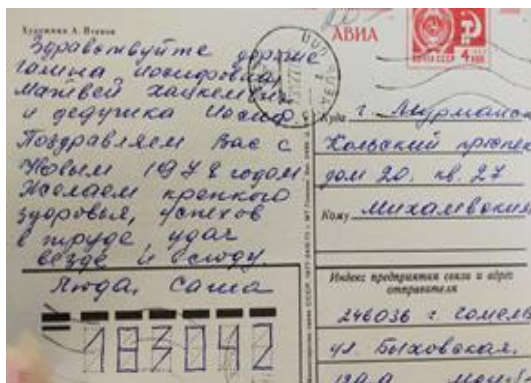 Художник А. Исаков
Здравствуйте дорогие
Галина Иосифовна,
Матвей
и дедушка Иосиф.
Поздравляем Вас с
Новым 1978 годом
Желаем крепкого
здоровья, успехов
в труде, удач
везде и всюду.
Люда, Саша
183042
АВИА
ПОЧТА СССР 4 КОП
Куда г. Мурманск
Кольский проспек
дом 20, кв. 27
Кому
Индекс предприятия связи и адрес
отправителя
246036 г Гомель
ул. Быховская,